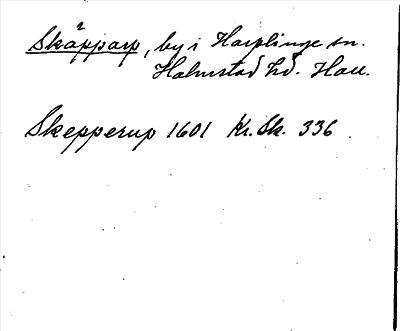 Skäpparp, by i Harplinge sn.
Halmstad hd. Hall.
Skepperup 1601 Kr. Sk. 336